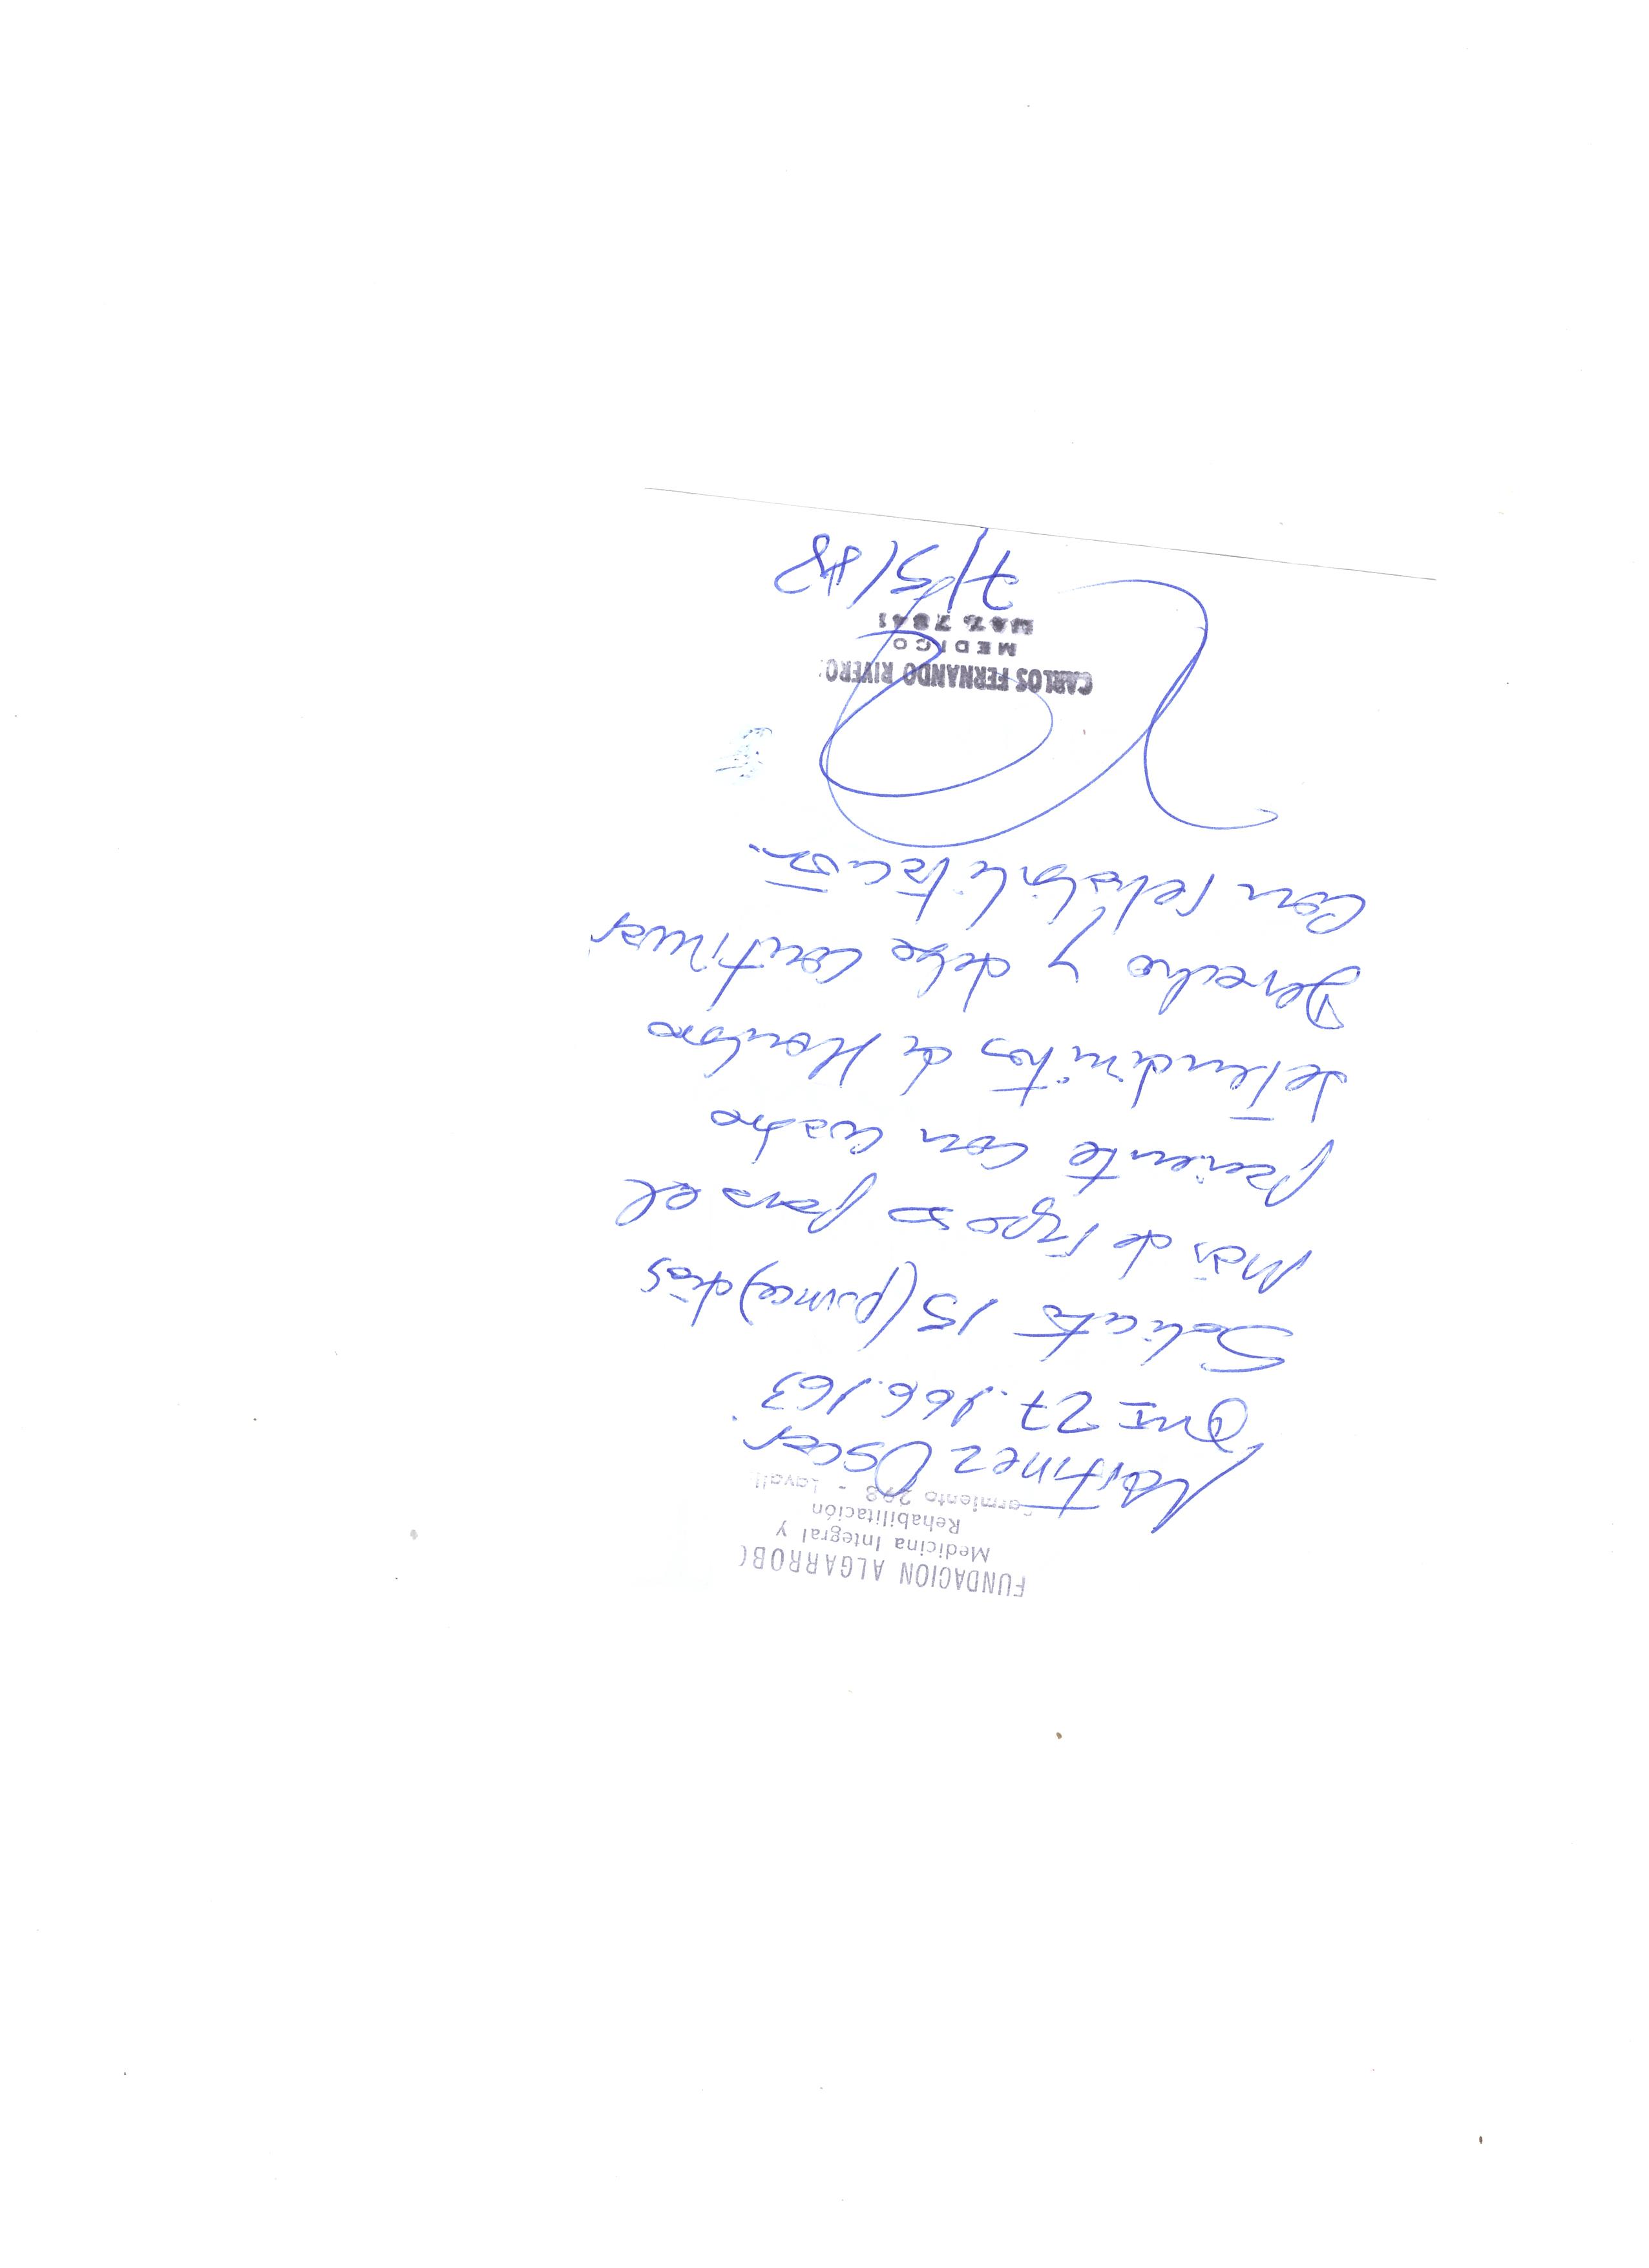 FUNDACION ALGARROBO
Medicina Integral y
Rehabilitación
armiento 298 - Lavall
Martinez Oscar
DNI 27.166.163
Solicito 15 (quince) días
más de reposo para el
paciente con cuadro
de tendinitis de Hombro
Derecho y debe continuar
con rehabilitación.
CARLOS FERNANDO RIVERO
MEDICO
MAT. 7841
7/5/